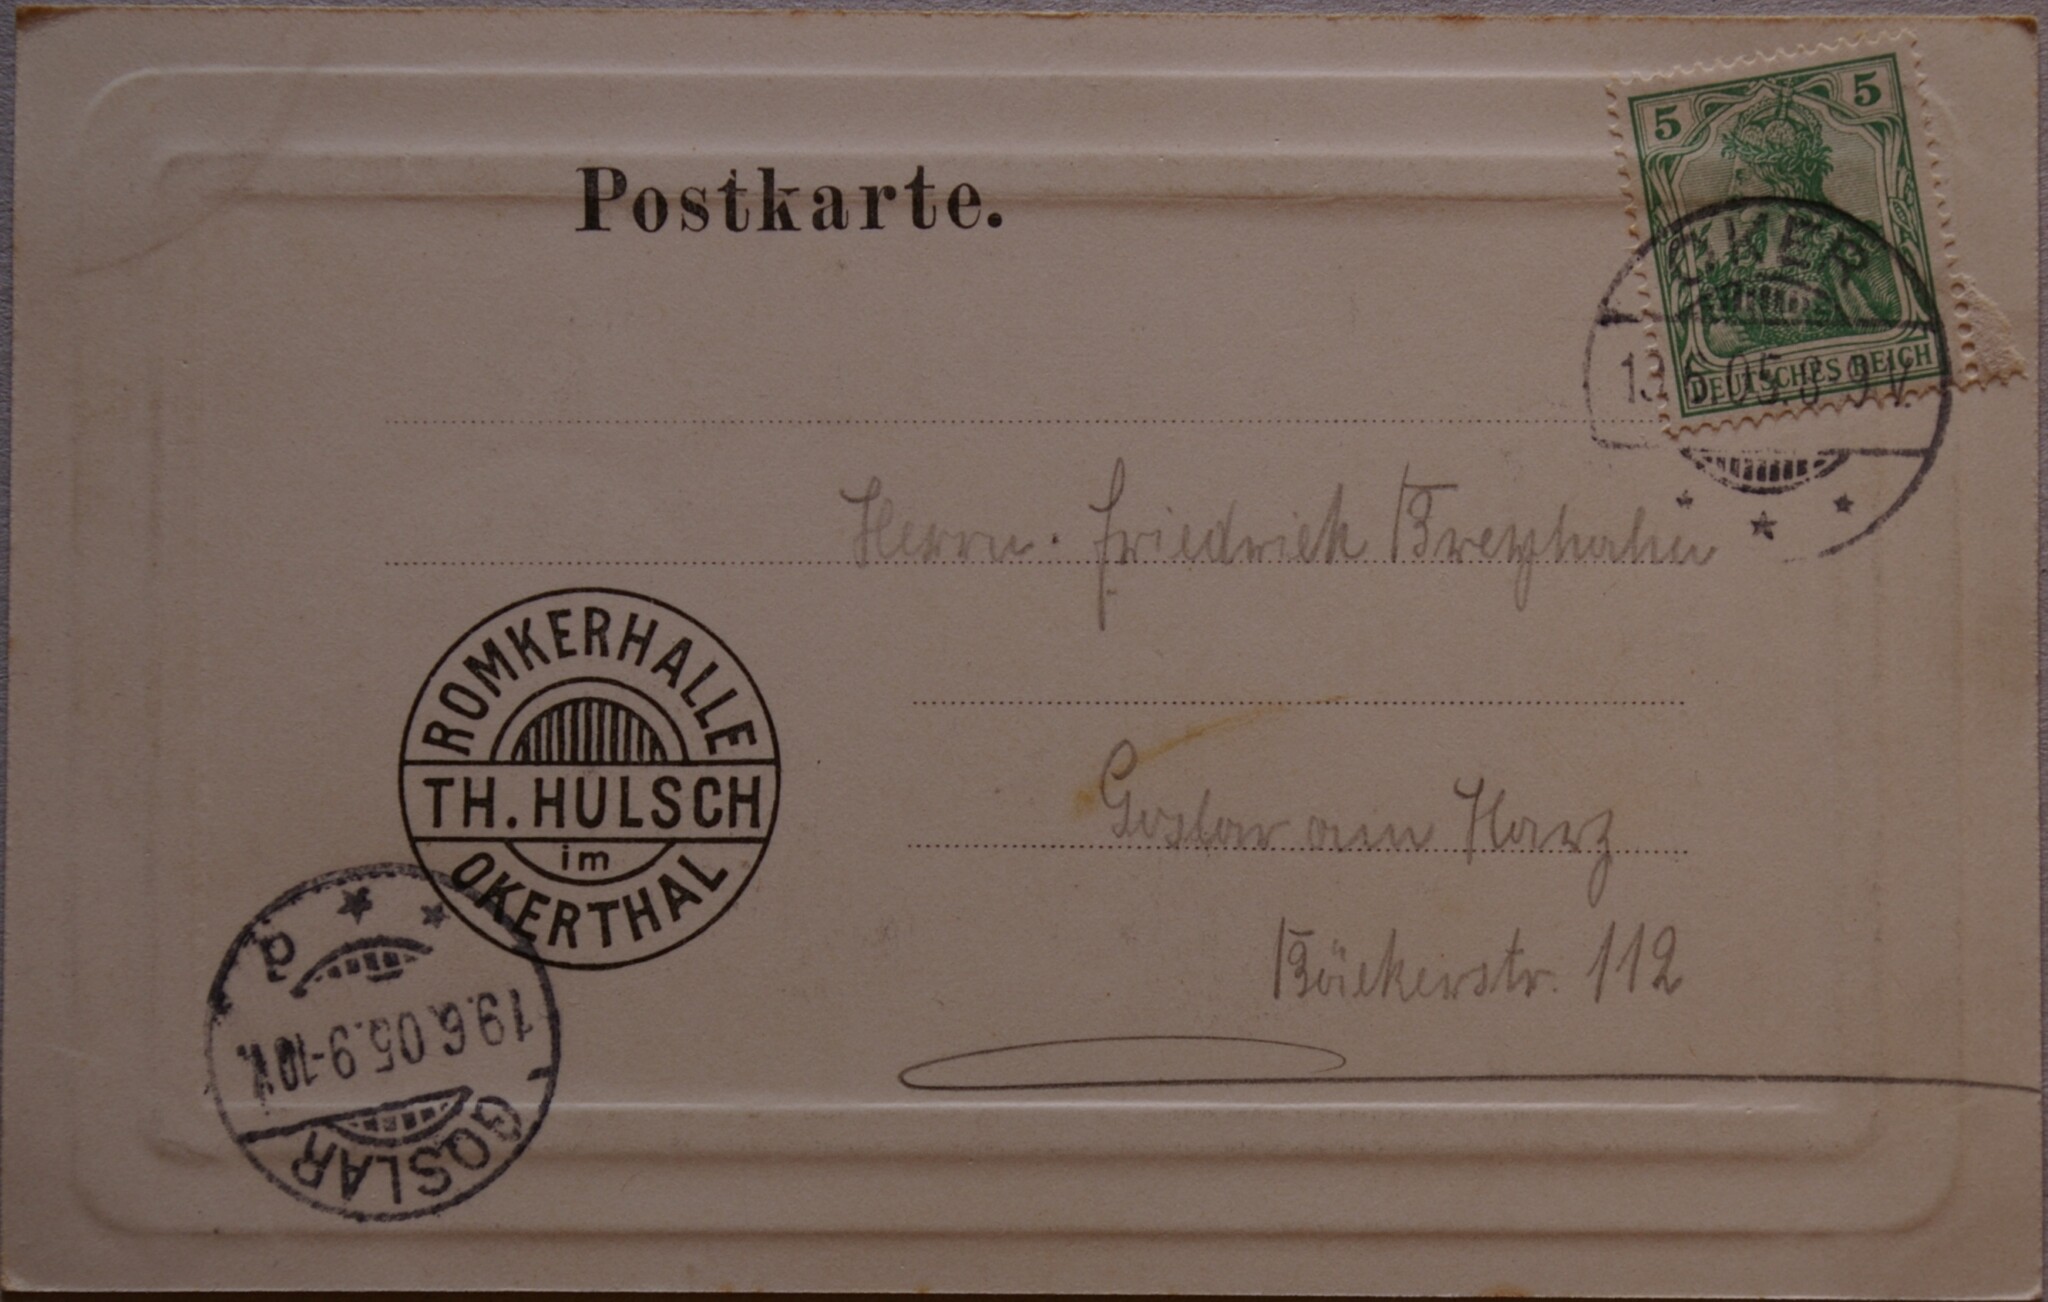 Postkarte.
5 5
DEUTSCHES REICH
OKER
5.05.8-9V.
Herrn. Friedrich Breyhahn
ROMKERHALLE
TH. HULSCH
im
OKERTHAL
Goslar am Harz
Bäckerstr. 112
GOSLAR
19.6.05.9-10V.